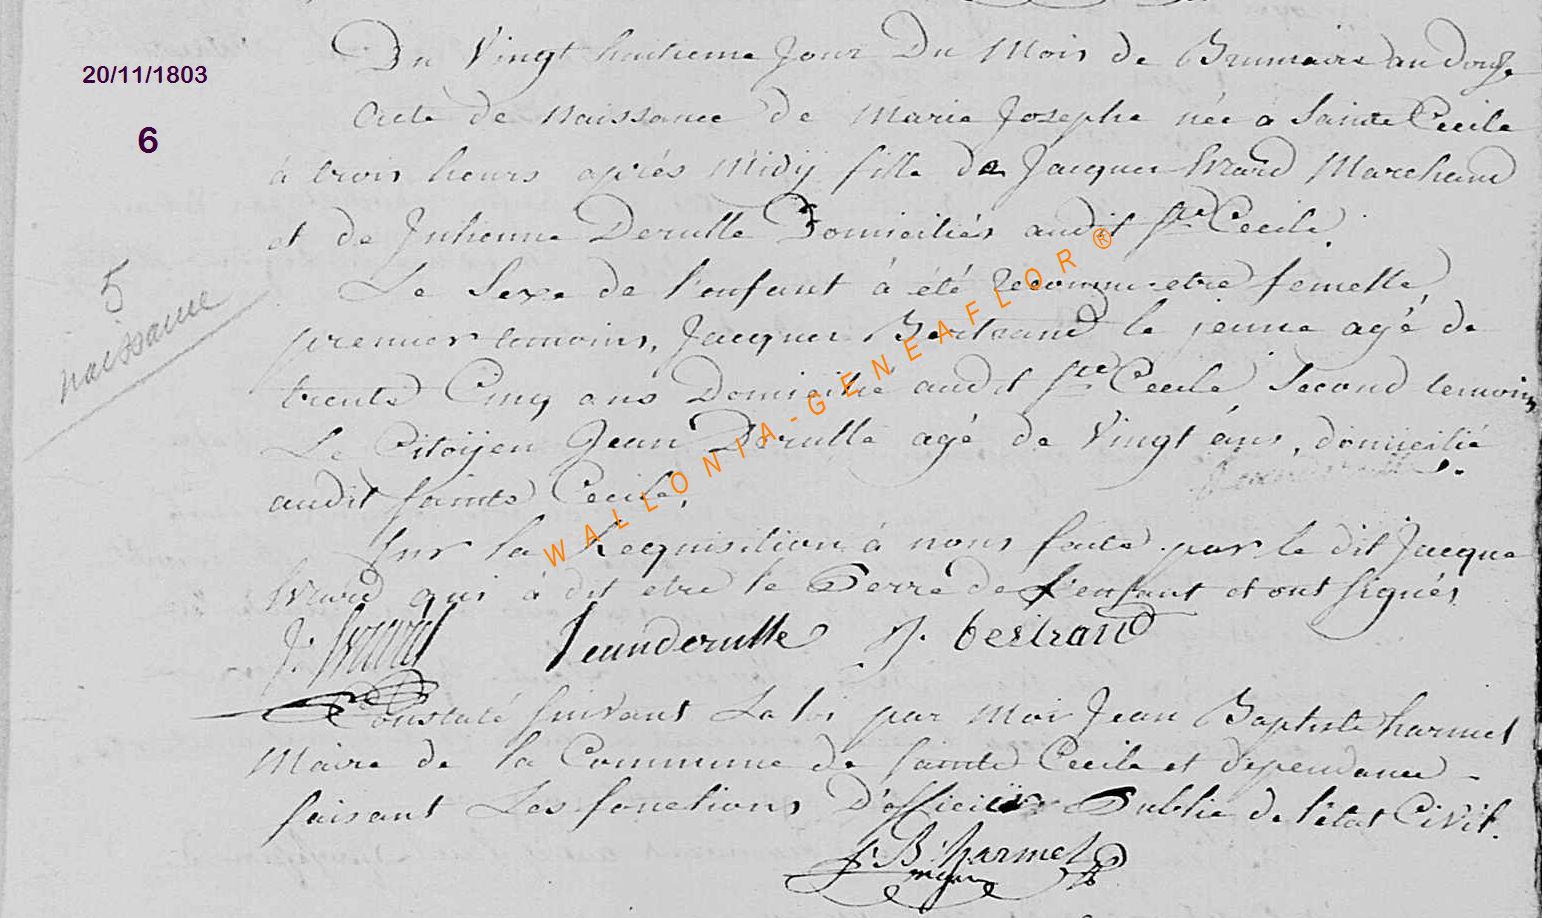 20/11/1803
6
5
naissance
Du Vingt huitieme Jour Du Mois de Brumaire an douze
Acte de Naissance de Marie Josephe née a Sainte Cecile
à trois heurs aprés Midÿ fille de Jacques Evard Marchand
et de Domiciliés audit Ste Cecile.
Le Sexe de l'enfant à été Reconnu etre femelle,
premier temoins, Jacques Bertrand le jeune agé de
trente Cinq ans Domicilié audit Ste Cecile Second temoins
Le Citoÿen Jean Derulle agé de Vingt ans, domicilié
audit Sainte Cecile,
Sur la Requisition à nous faite par le dit Jacque
Evard qui à dit etre le Perre de l'enfant et ont Signés
J: Evard Jeanderulle J. bertrand
Constaté suivant La loi par Moi Jean Baptiste harmel
Maire de la Commune de Sainte Cecile et dependance
faisant Les fonctions D'officier Public de l'état Civil.
J: B: harmel
maire
WALLONIA-GENEAFLOR®